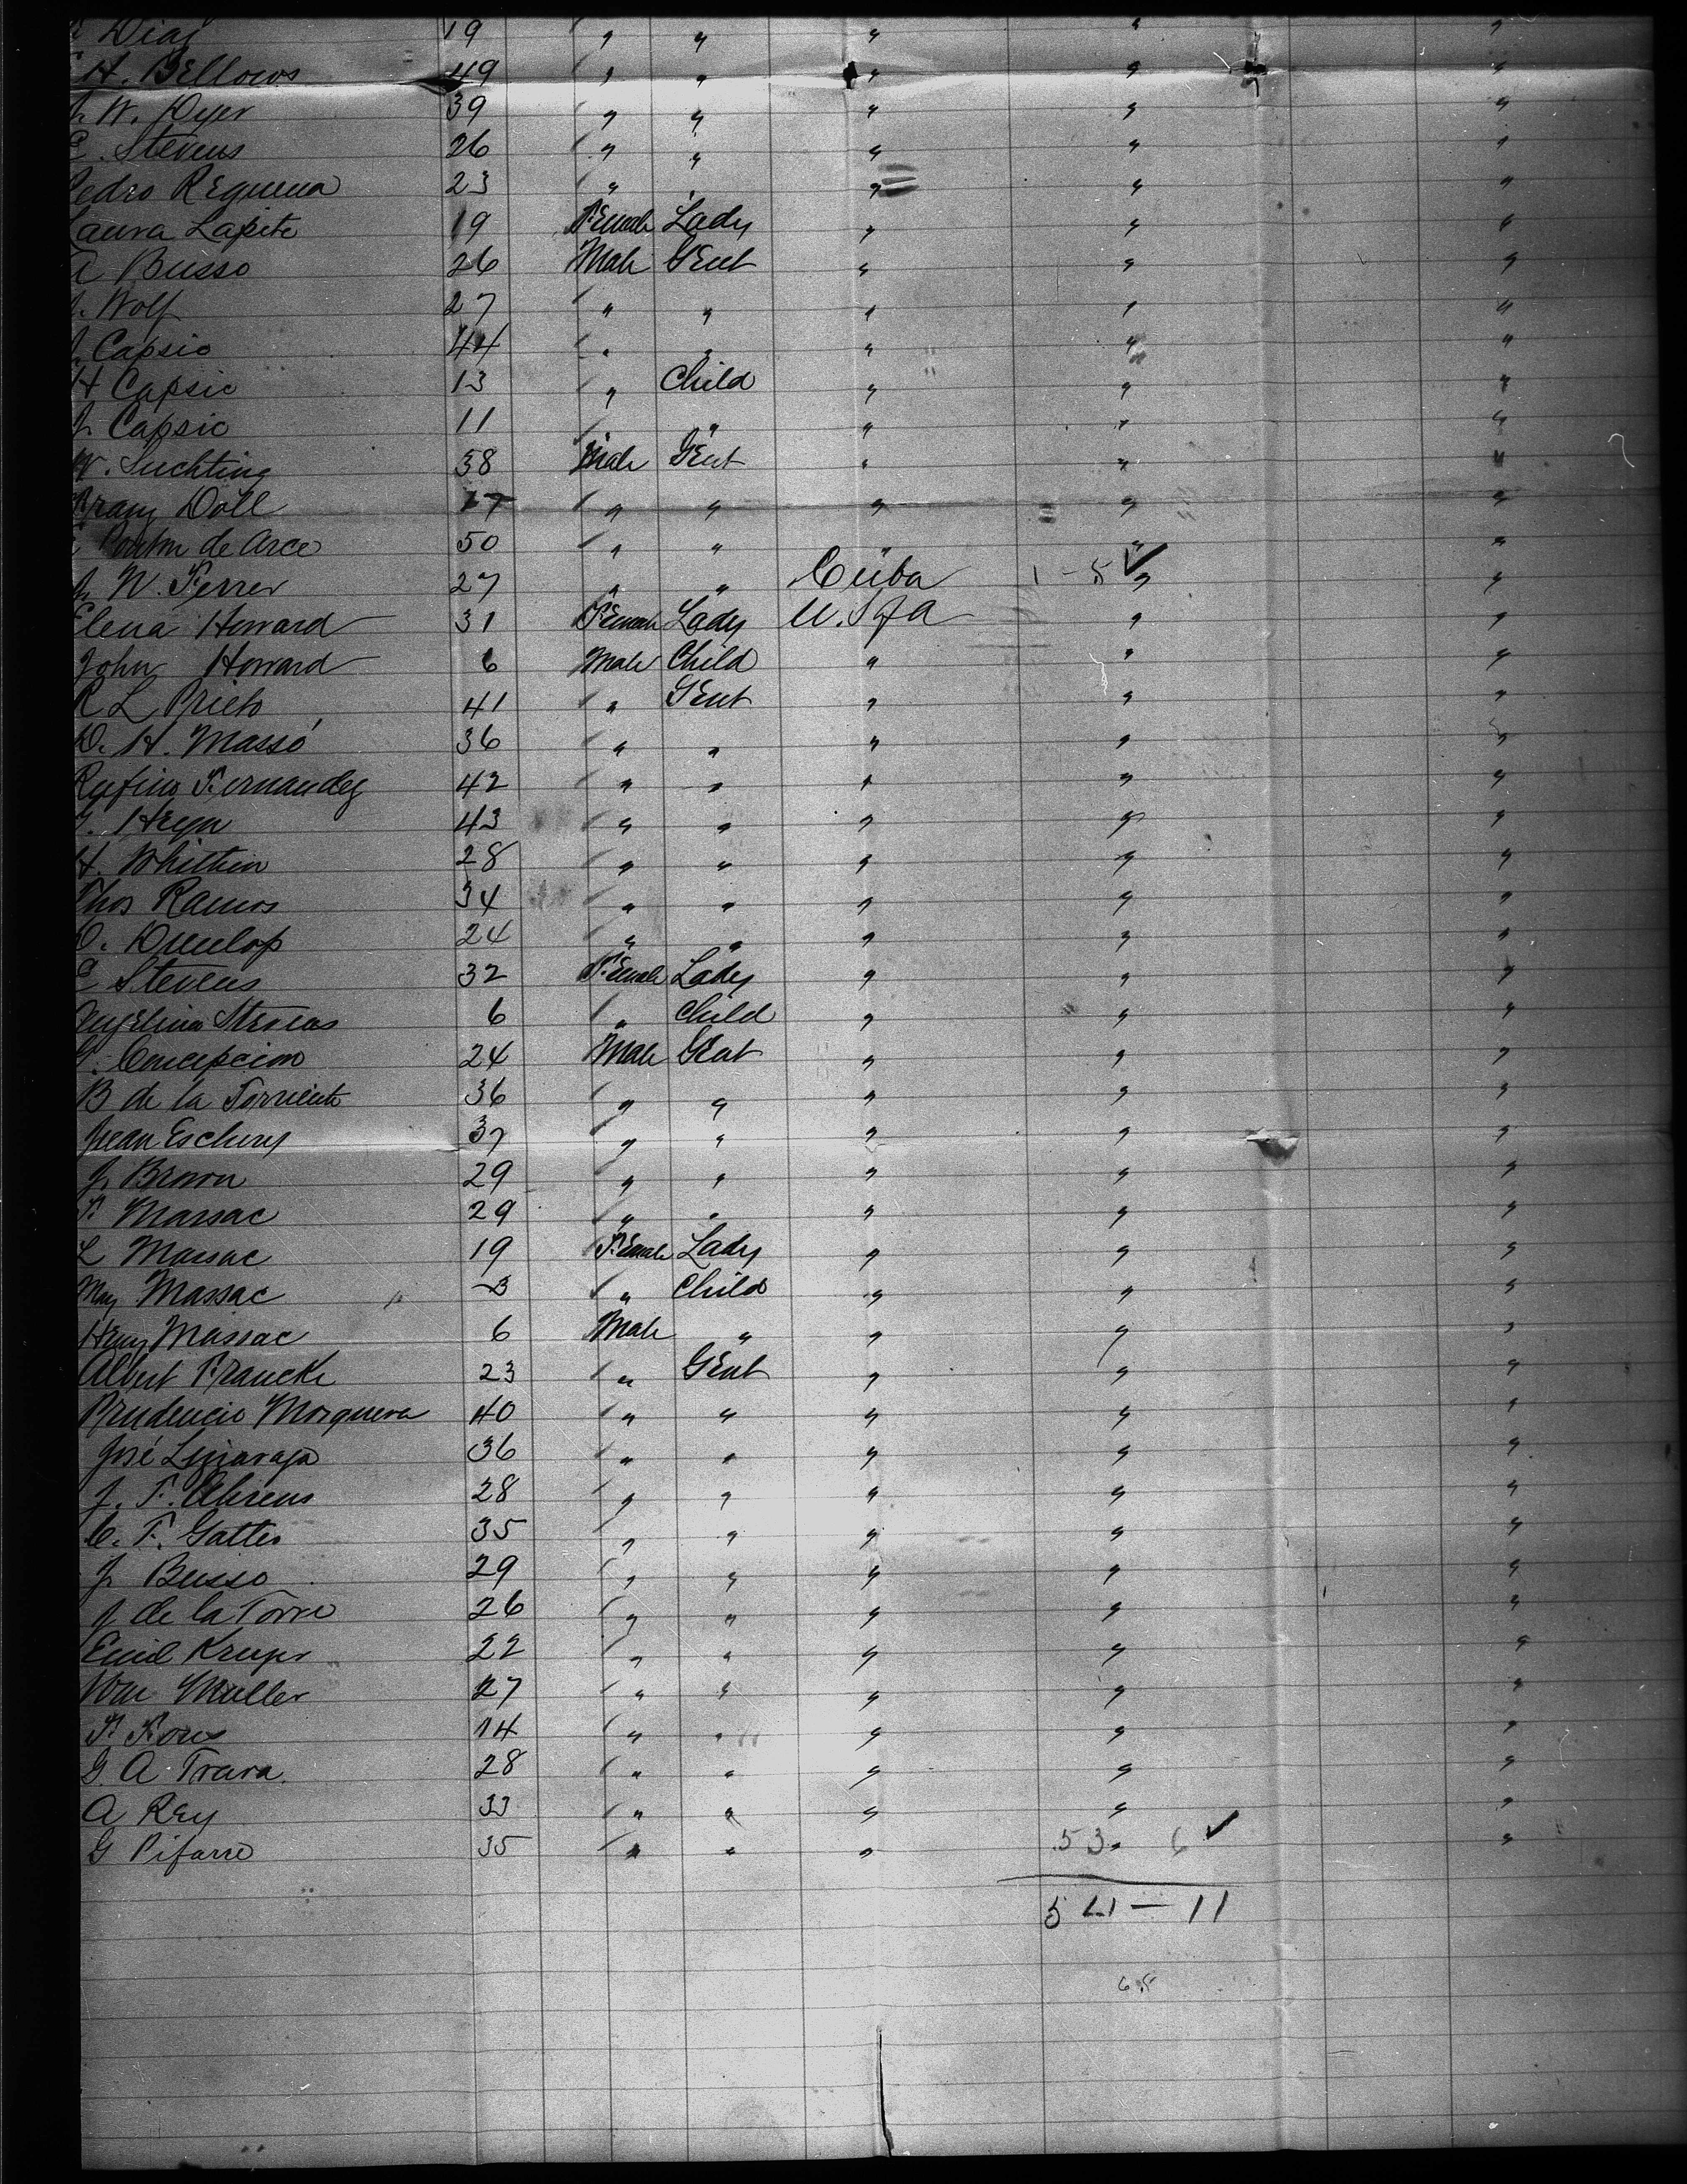 Diaz 19 " " " " "
H. Bellows 49 " " " " "
J. W. Dyer 39 " " " " "
E. Stevens 26 " " " " "
Pedro Requena 23 " " " " "
Laura Lapite 19 Female Lady " " "
A Busso 26 Male Gent " " "
J. Wolf 27 " " " " "
J. Capsic 44 " " " " "
H Capsic 13 " Child " " "
J. Capsic 11 " " " " "
W. Suchting 38 Male Gent " " "
Franz Doll 17 " " " " "
de Arce 50 " " " " "
J. N. Ferrer 27 " " Cuba 1 - 5 ✓ " "
Elena Howard 31 Female Lady U. S of A " "
John Howard 6 Male Child " " "
R L Prieto 41 " Gent " " "
D. H. Massó 36 " " " " "
Rufino Fernandez 42 " " " " "
Heyn 43 " " " " "
H. Whithin 28 " " " " "
Thos Ramos 34 " " " " "
D. Dunlop 24 " " " " "
E Stevens 32 Female Lady " " "
Angelina Stevens 6 " Child " " "
G. Concepcion 24 Male Gent " " "
B de la Torriente 36 " " " " "
Juan Eschery 37 " " " " "
J. Brown 29 " " " " "
F. Massac 29 " " " " "
L Massac 19 Female Lady " " "
May Massac 3 " Child " " "
Henry Massac 6 Male " " " "
Albert Francke 23 " Gent " " "
Prudencio Morquera 40 " " " " "
José 36 " " " " "
J. F. Ahrens 28 " " " " "
C. F. Gattes 35 " " " " "
J. Busso 29 " " " " "
J de la Torre 26 " " " " "
Emil 22 " " " " "
Wm Muller 27 " " " " "
F. 14 " " " " "
G. A Trava. 28 " " " " "
A Rey 33 " " " " "
G Pifarre 35 " " " 53 " 6 ✓ "
54 - 11